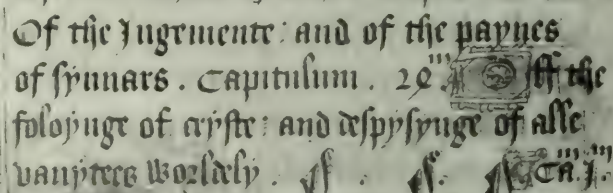 Of the Jugemente: and of the paynes
of synnars. Capitulum. 24
Off the
folojnge of cryste: and despysynge of alle
vanytees Worldely. Ca. j.